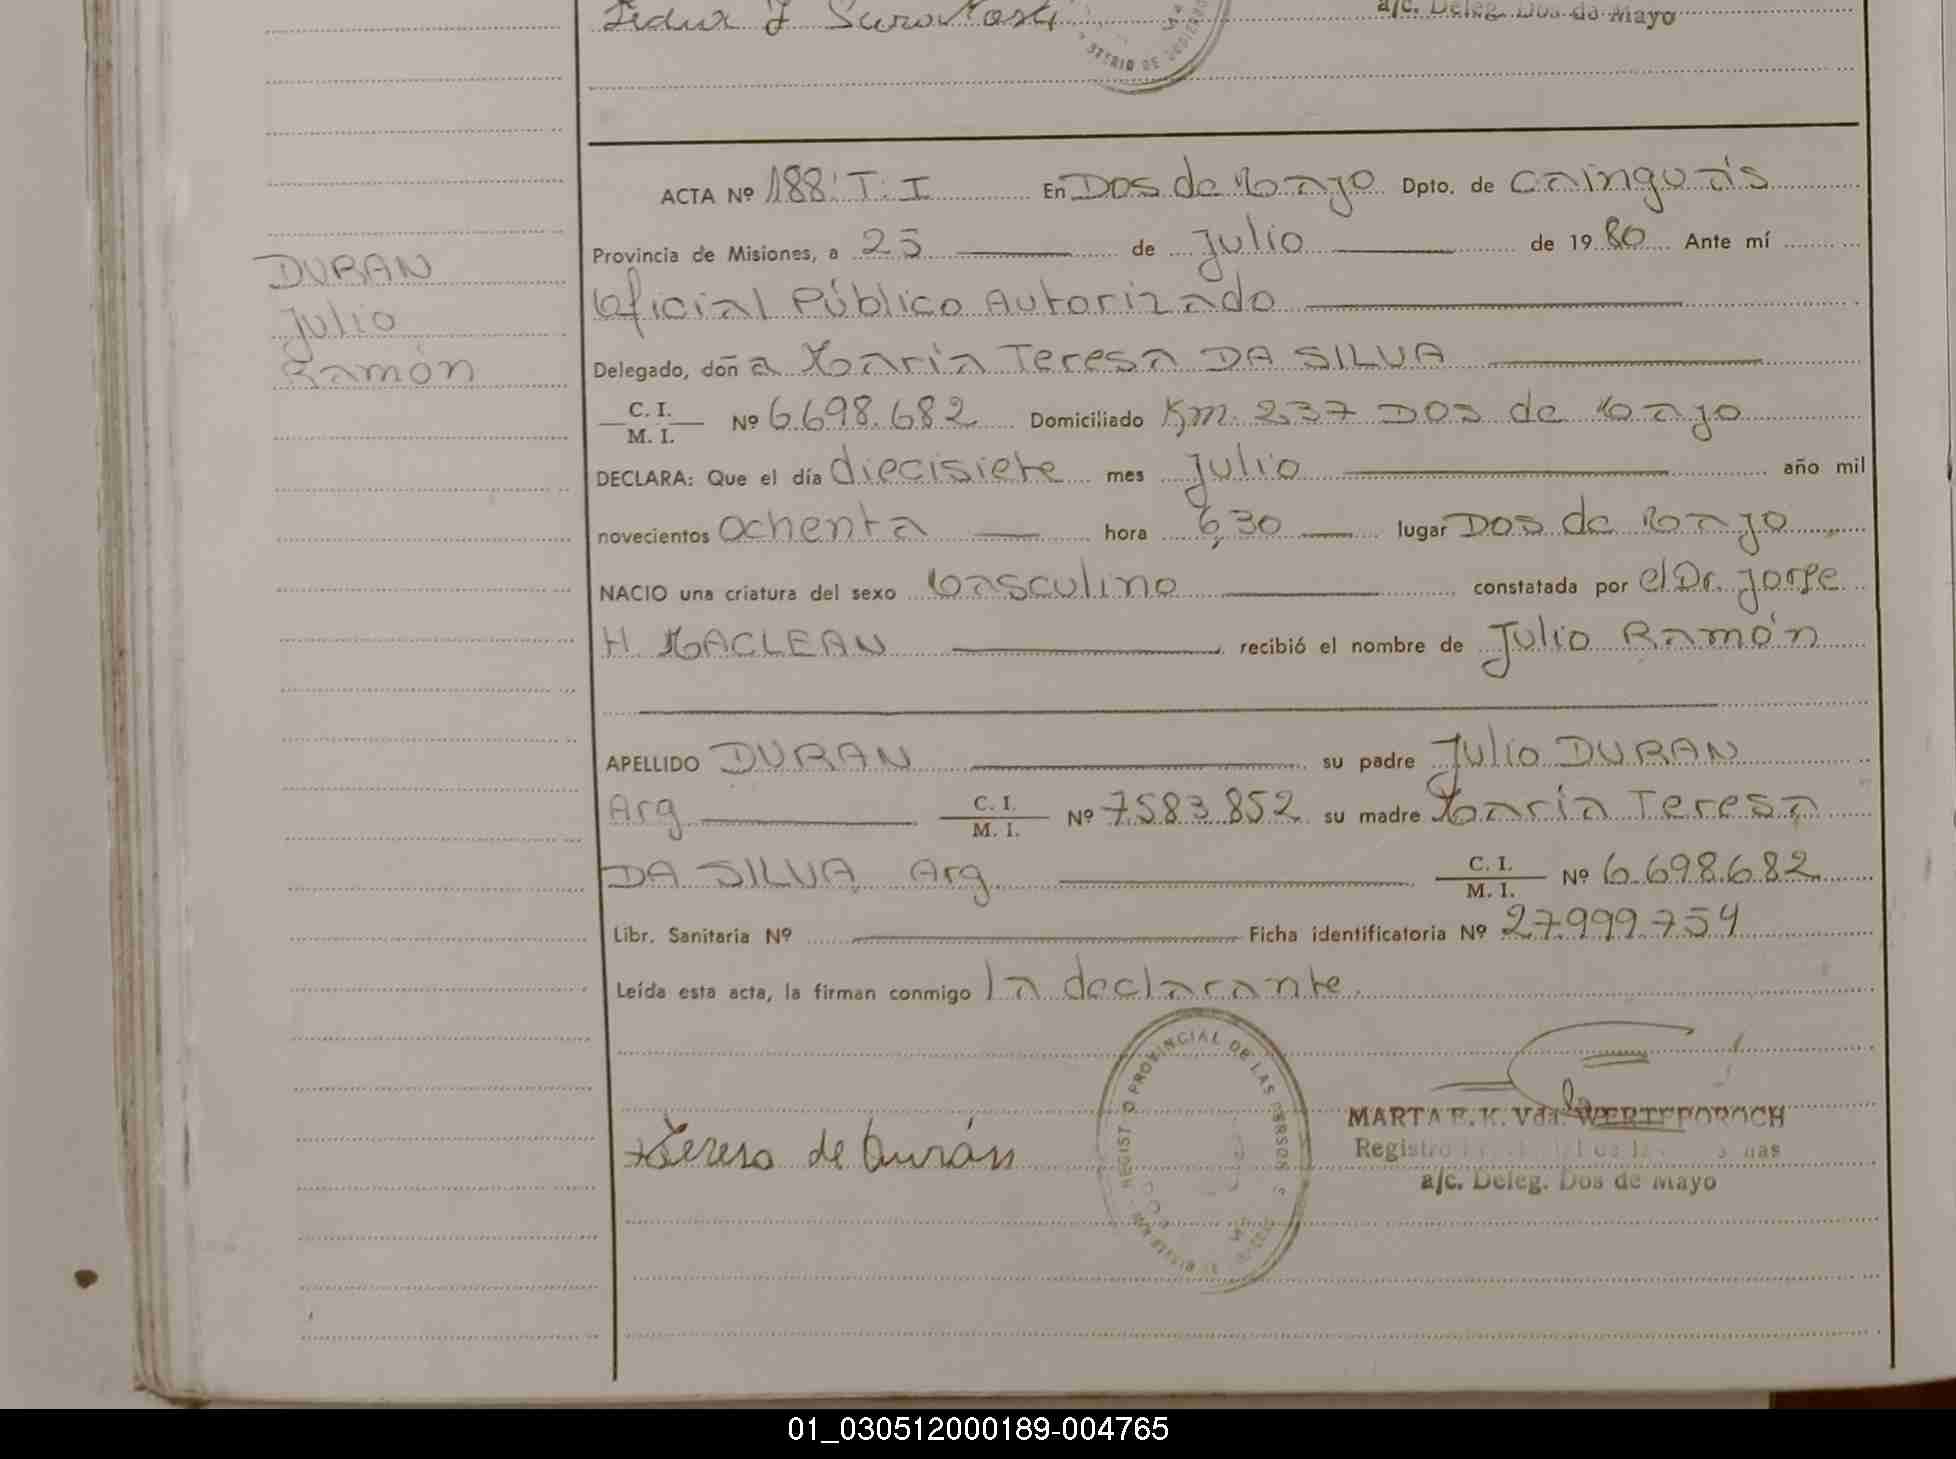 a/c. Deleg. Dos de Mayo
ACTA Nº 188. T. I En Dos de Mayo Dpto. de Cainguás
Provincia de Misiones, a 25 de Julio de 1980 Ante mí
Oficial Público Autorizado
Delegado, doña Maria Teresa DA SILVA
C. I.
M. I. Nº 6.698.682 Domiciliado Km. 237 Dos de Mayo
DECLARA: Que el día diecisiete mes Julio año mil
novecientos ochenta hora 6,30 lugar Dos de Mayo
NACIO una criatura del sexo Masculino constatada por el Dr. Jorge
H. MACLEAN recibió el nombre de Julio Ramón
APELLIDO DURAN su padre Julio DURAN
Arg C. I.
M. I. Nº 7.583.852 su madre Maria Teresa
DA SILVA Arg C. I.
M. I. Nº 6.698.682
Libr. Sanitaria Nº Ficha identificatoria Nº 27.999.754
Leída esta acta, la firman conmigo la declarante.
DURAN
Julio
Ramón
Teresa de Durán
REGISTRO PROVINCIAL DE LAS PERSONAS
MARTA E. K. Vda. WERTEPOROCH
a/c. Deleg. Dos de Mayo
01_030512000189-004765